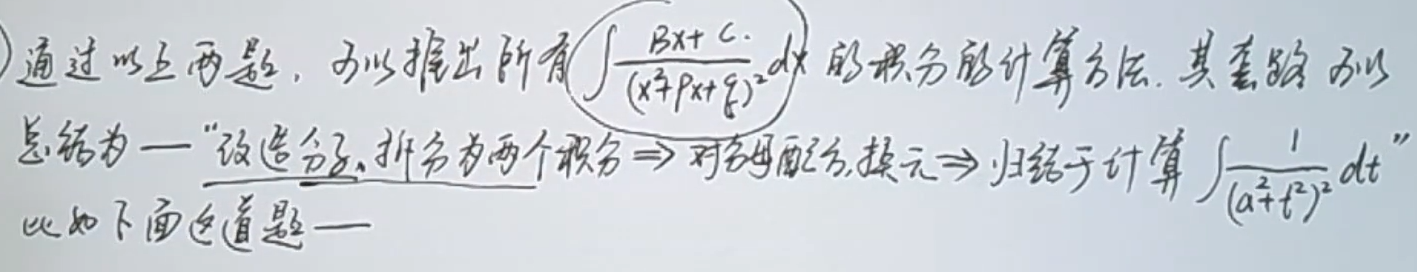 )通过以上两题，可以推出所有∫\frac{Bx+C.}{(x²+px+q)²}dx 的积分的计算方法.其套路可以
总结为一"改造分子、拆分为两个积分⇒对分母配方,换元⇒归结于计算∫\frac{1}{(a²+t²)²}dt"
比如下面这道题一